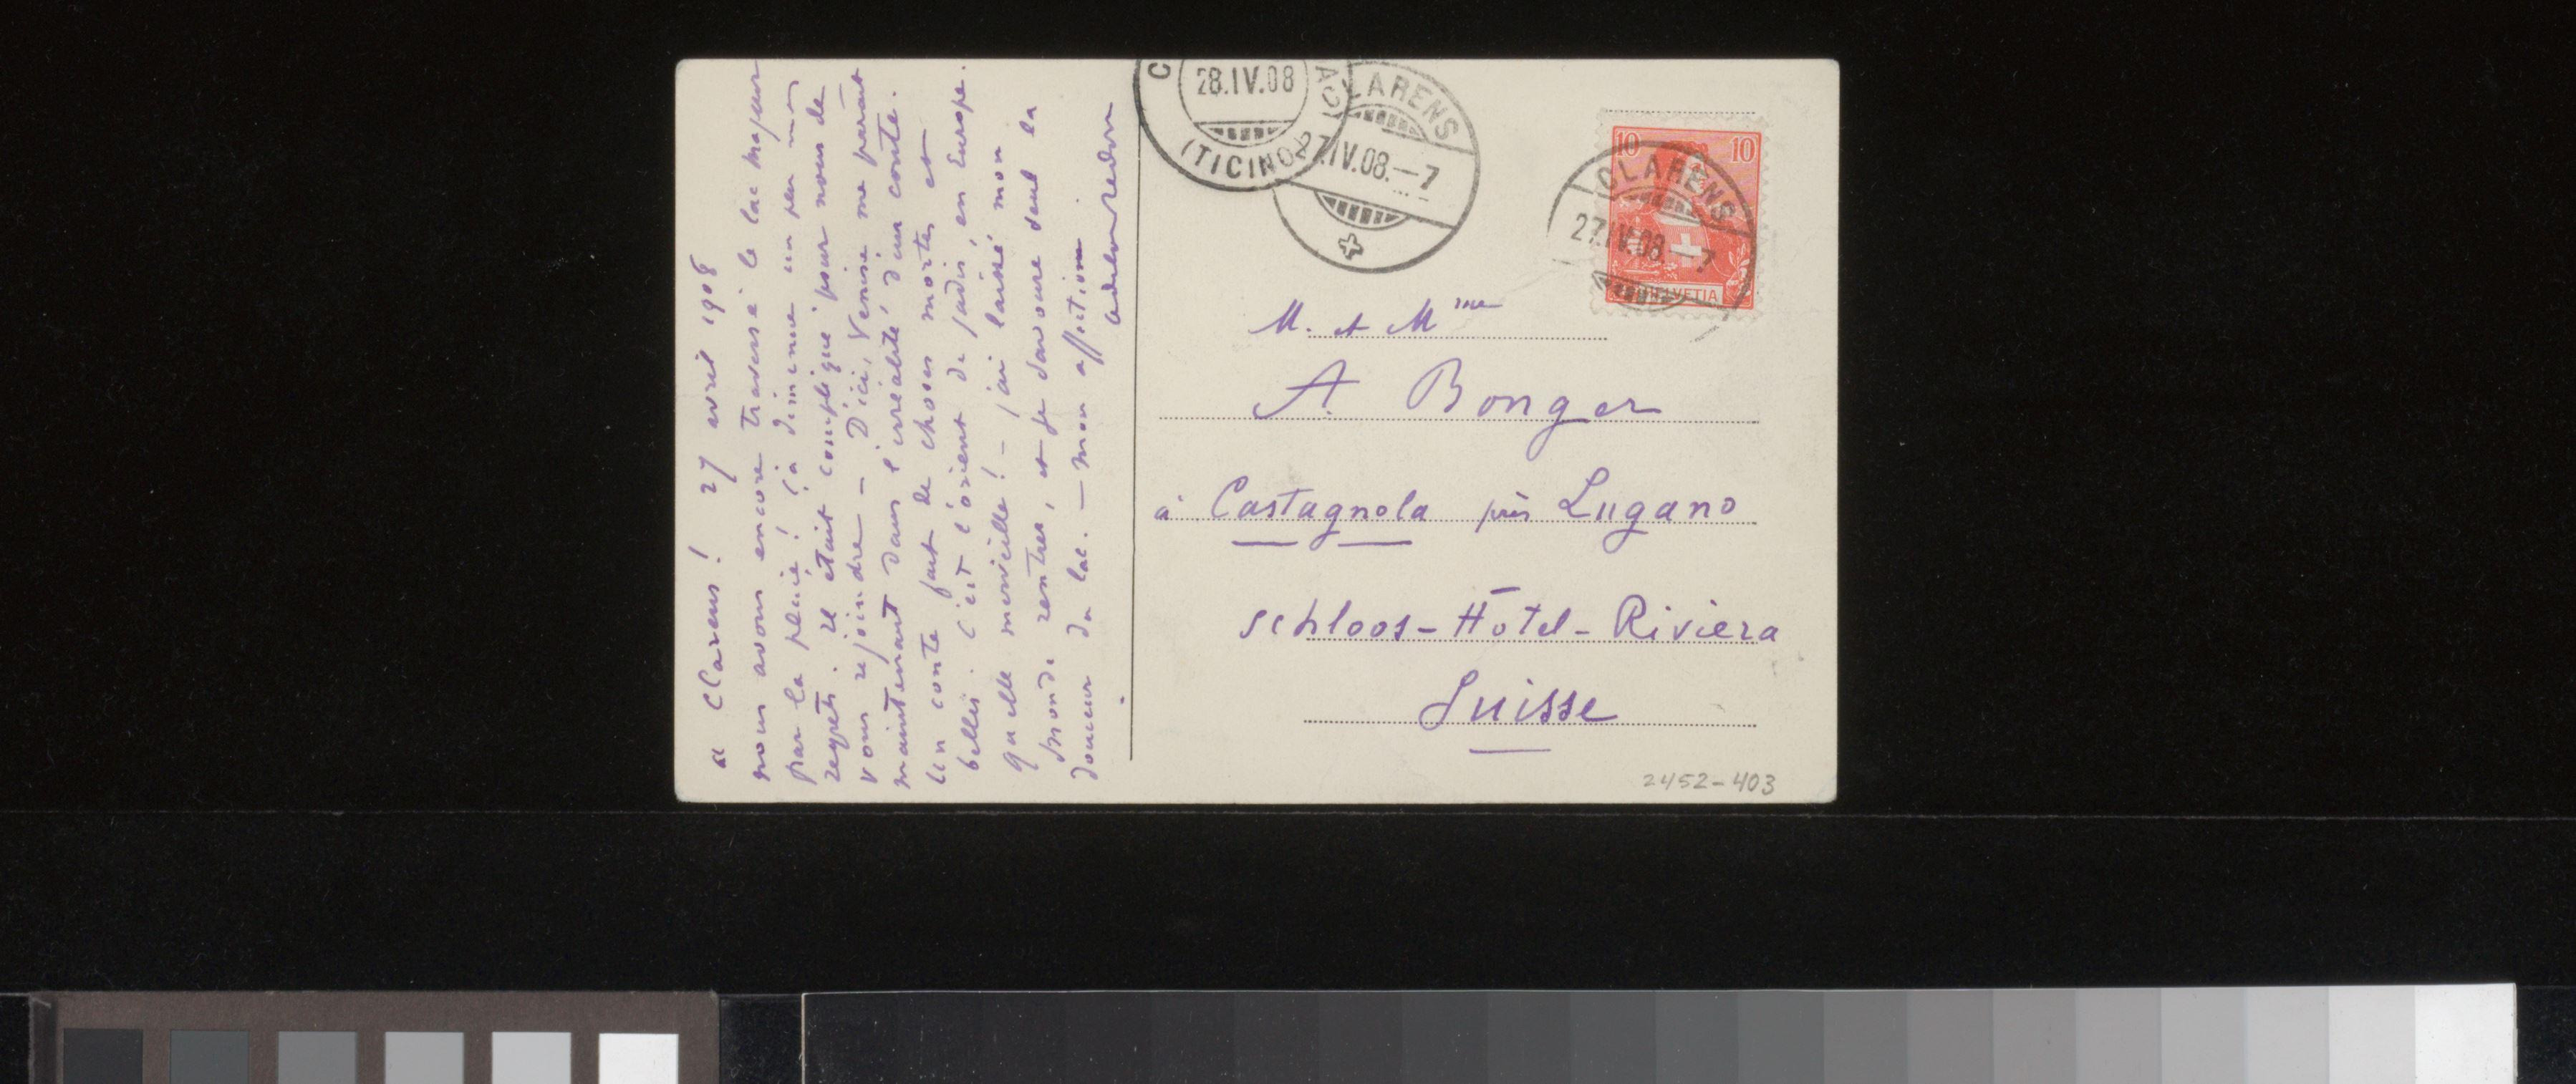 a Clarens! 27 avril 1908
nous avons encore traversé le lac Majeur
par la pluie! ça diminue un peu mes
regrets. il était compliqué pour nous de
vous rejoindre – D'ici, Venise me paraît
maintenant dans l'irréalité d'un conte.
un conte fait de choses mortes et
belles. c'est l'orient de jadis, en Europe.
quelle merveille! – j'ai laissé mon
monde rentrer, et je savoure seul la
douceur du lac. – mon affection.
odilon redon
28.IV.08
(TICINO)
CLARENS
27.IV.08.–7
10 10
CLARENS
27.IV.08–7
HELVETIA
M. et Mme
A. Bonger
à Castagnola près Lugano
Schloos-Hôtel-Riviera
Suisse
2452-403